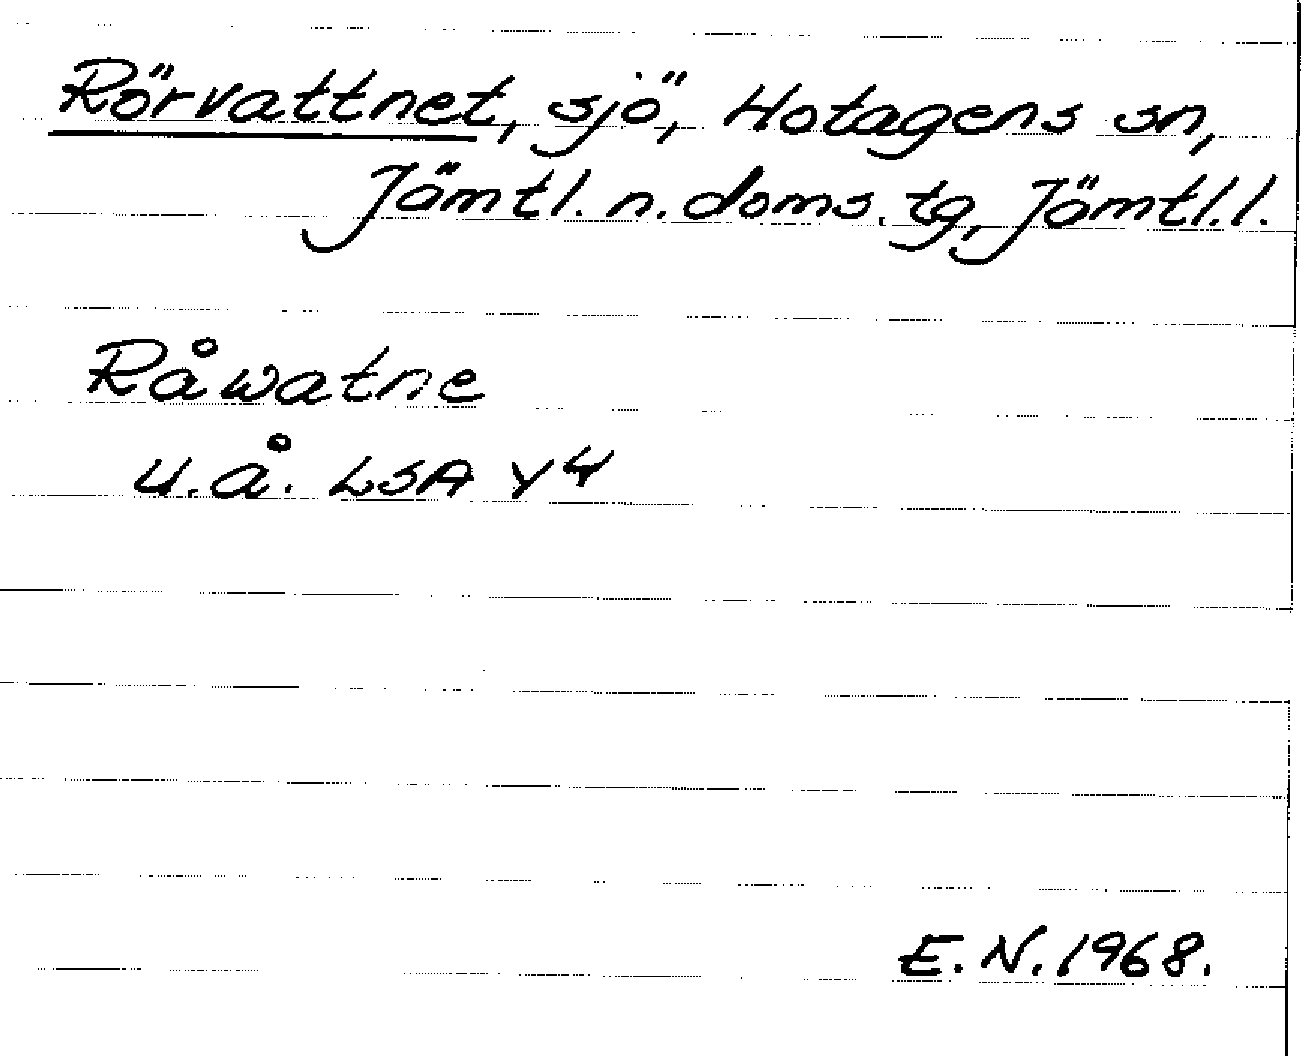 Rörvattnet, sjö, Hotagens sn,
Jämtl. n. doms. tg, Jämtl. l.
Råwatne
u.å. LSA Y4
E.N. 1968.